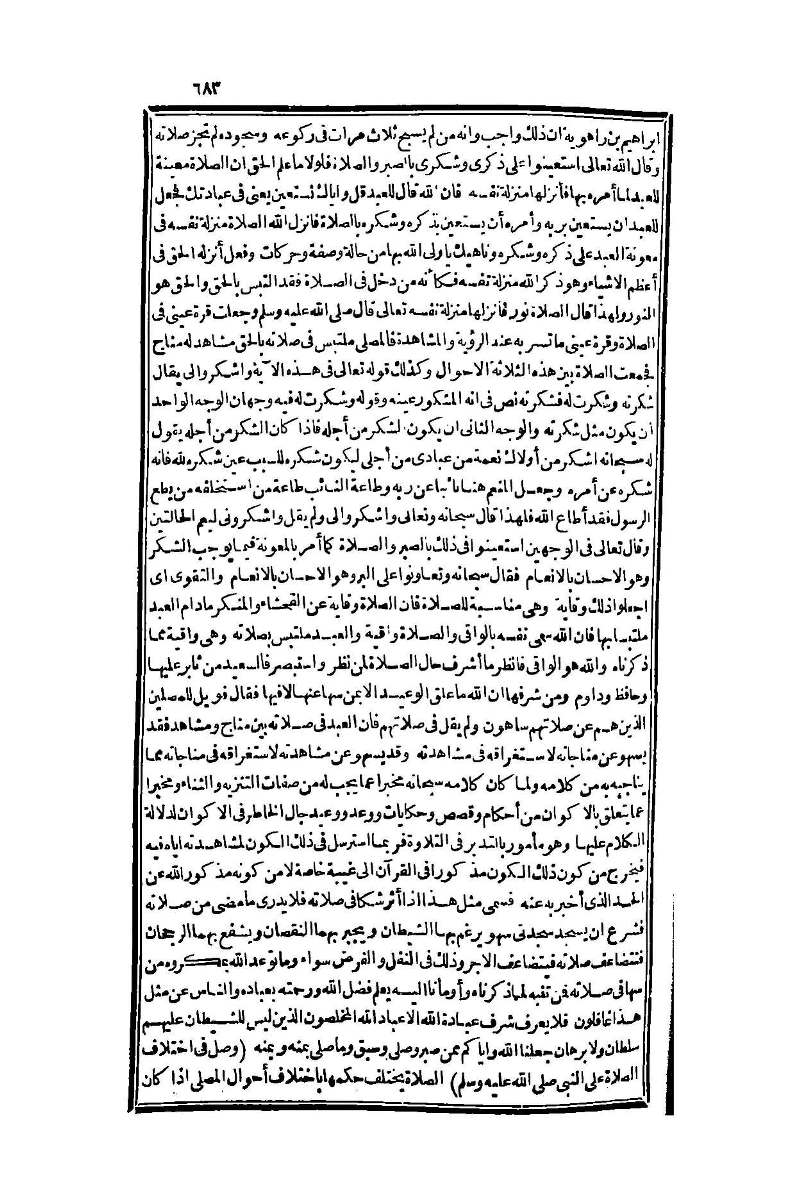 ٦٨٣
ابراهيم بن راهويه ان ذلك واجب وانه من لم يسبح ثلاث مرات فى ركوعه وسجوده لم تجز صلاته
وقال الله تعالى استعينوا على ذكرى وشكرى بالصبر والصلاة فلولا ما علم الحق ان الصلاة معينة
للعبد لما أمره بها فأنزلها منزلة نفسه فان الله قال للعبد قل واياك نستعين يعنى فى عبادتك فجعل
للعبد ان يستعين بربه وأمره أن يستعين بذكره وشكره بالصلاة فانزل الله الصلاة منزلة نفسه فى
معونة العبد على ذكره وشكره وناهيك ياولى الله بها من حالة وصفة وحركات وفعل أنزله الحق فى
أعظم الاشياء وهو ذكر الله منزلة نفسه فكأنه من دخل فى الصلاة فقد التبس بالحق والحق هو
النور ولهذا قال الصلاة نور فانزلها منزلة نفسه تعالى قال صلى الله عليه وسلم وجعلت قرة عينى فى
الصلاة وقرة عينى ما تسر به عند الرؤية والمشاهدة فالمصلى ملتبس فى صلاته بالحق مشاهد له مناج
فجمعت الصلاة بين هذه الثلاثة الاحوال وكذلك قوله تعالى فى هذه الآية واشكروا لى يقال
شكرته وشكرت له فشكرته نص فى انه المشكور عينه وقوله وشكرت له فيه وجهان الوجه الواحد
أن يكون مثل شكرته والوجه الثانى ان يكون الشكر من أجله فاذا كان الشكر من أجله يقول
له سبحانه اشكر من أولاك نعمة من عبادى من أجلى ليكون شكره للسبب عين شكره لله فانه
شكره عن أمره وجعل المنعم هنا نائبا عن ربه وطاعة النائب طاعة من استخلفه من يطع
الرسول فقد أطاع الله فلهذا قال سبحانه وتعالى واشكروا لى ولم يقل واشكرونى ليعم الحالتين
وقال تعالى فى الوجهين استعينوا فى ذلك بالصبر والصلاة كما أمر بالمعونة فيما يوجب الشكر
وهو الاحسان بالانعام فقال سبحانه وتعاونوا على البر وهو الاحسان بالانعام والتقوى اى
اجعلوا ذلك وقاية وهى مناسبة للصلاة فان الصلاة وقاية عن الفحشاء والمنكر مادام العبد
ملتبسا بها فان الله سمى نفسه بالواقى والصلاة واقية والعبد ملتبس بصلاته وهى واقية مما
ذكرناه والله هو الواقى فانظر ما أشرف حال الصلاة لمن نظر واستبصر فالسعيد من ثابر عليها
وحافظ وداوم ومن شرفها ان الله ما علق الوعيد الا بمن سها عنها لا فيها فقال فويل للمصلين
الذين هم عن صلاتهم ساهون ولم يقل فى صلاتهم فان العبد فى صلاته بين مناج ومشاهد فقد
يسهو عن مناجاته لاستغراقه فى مشاهدته وقد يسهو عن مشاهدته لاستغراقه فى مناجاته مما
يناجيه به من كلامه ولما كان كلامه سبحانه مخبرا عما يجب له من صفات التنزيه والثناء ومخبرا
عما يتعلق بالاكوان من أحكام وقصص وحكايات ووعد ووعيد جال الخاطر فى الاكوان لدلالة
الكلام عليها وهو مأمور بالتدبر فى التلاوة فربما استرسل فى ذلك الكون لمشاهدته اياه فيه
فيخرج من كون ذلك الكون مذكورا فى القرآن الى غيبة خاصة لا من كونه مذكور الله عن
الحد الذى أخبر به عنه فسمى مثل هذا اذا أثر شكا فى صلاته فلا يدرى ما مضى من صلاته
فشرع ان يسجد سجدتى سهو يرغم بها الشيطان ويجبر بهما النقصان ويشفع بهما الرجحان
فتتضاعف صلاته فيتضاعف الاجر وذلك فى النفل والفرض سواء وما توعد الله بمكروه من
سها فى صلاته فمن تنبه لما ذكرناه وأومأنا اليه يعلم فضل الله ورحمته بعباده والناس عن مثل
هذا غافلون فلا يعرف شرف عبادة الله الا عباد الله المخلصون الذين ليس للشيطان عليهم
سلطان ولا برهان جعلنا الله واياكم ممن صبر وصلى وسبق وما صلى بمنه ويمنه (وصل فى اختلاف
الصلاة على النبى صلى الله عليه وسلم) الصلاة يختلف حكمها باختلاف أحوال المصلى اذا كان